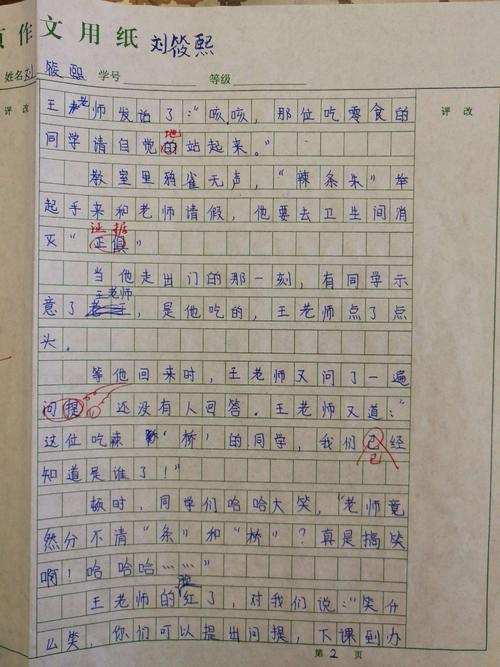 作文用纸 刘筱熙
姓名 刘筱熙 学号 等级
评改 评改
王老师发话了：“咳咳，那位吃零食的
地
同学请自觉的站起来。”
教室里鸦雀无声，“辣条朱”举
起手来和老师请假，他要去卫生间消
证据
灭“正俱”
当他走出门的那一刻，有同学示
王老师
意了，是他吃的，王老师点了点
头。
等他回来时，王老师又问了一遍
问提，还没有人回答。王老师又道：“
这位吃辣‘桥’的同学，我们已经
已
知道是谁了！”
顿时，同学们哈哈大笑，“老师竟
然分不清“条”和“桥”？真是搞笑
啊！哈哈哈……”
王老师的脸红了，对我们说：“笑什
么笑，你们可以提出问提，下课到办
第2页